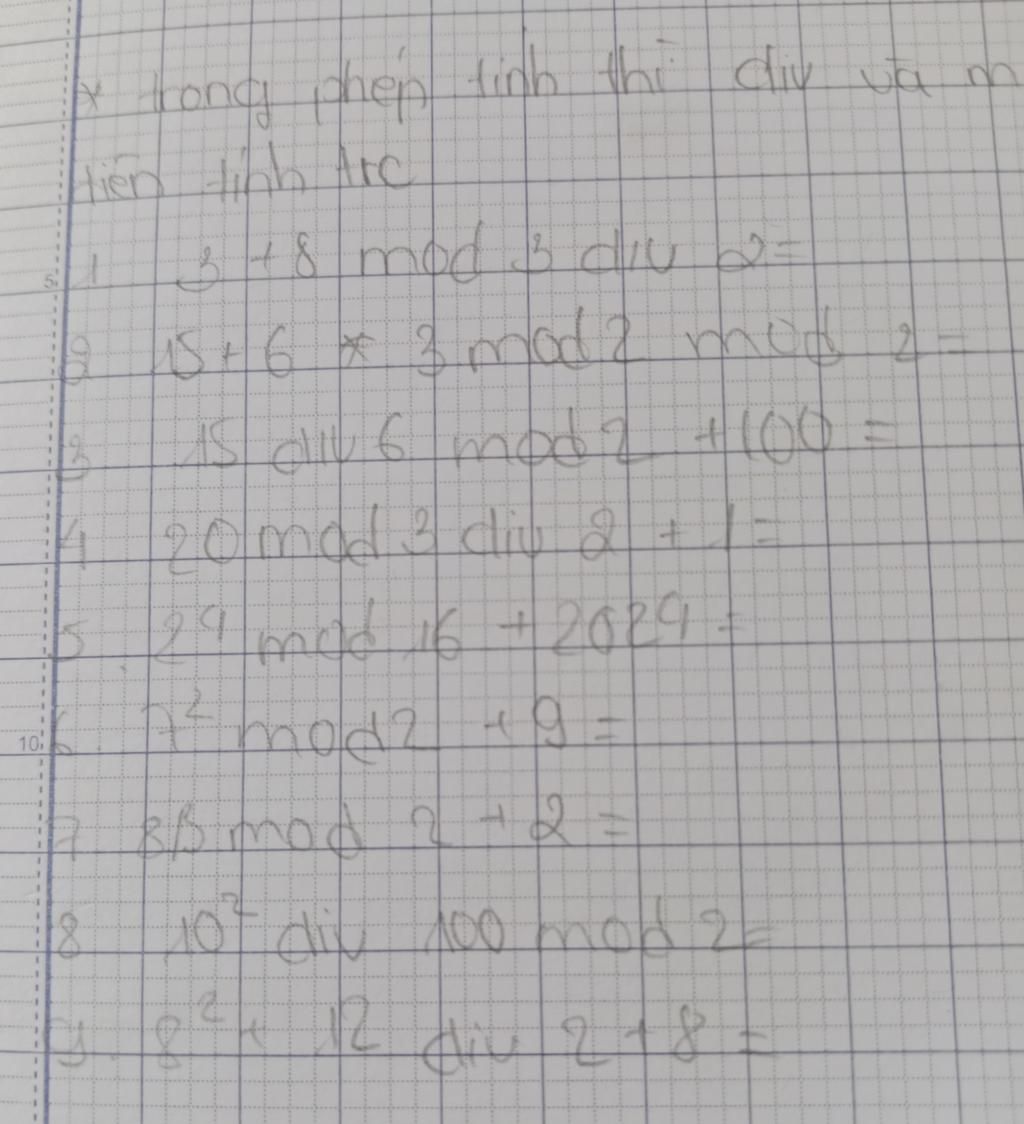 * trong phép tính thì div và m
tiên tính trc
1 3 + 8 mod 3 div 2 =
2 15 + 6 * 3 mod 2 mod 2 =
3 15 div 6 mod 2 + 100 =
4 20 mod 3 div 2 + 1 =
5. 2⁹ mod 16 + 2029 =
6. 7² mod 2 + 9 =
7 8³ mod 2 + 2 =
8 10² div 100 mod 2 =
9. 8² + 12 div 2 + 8 =